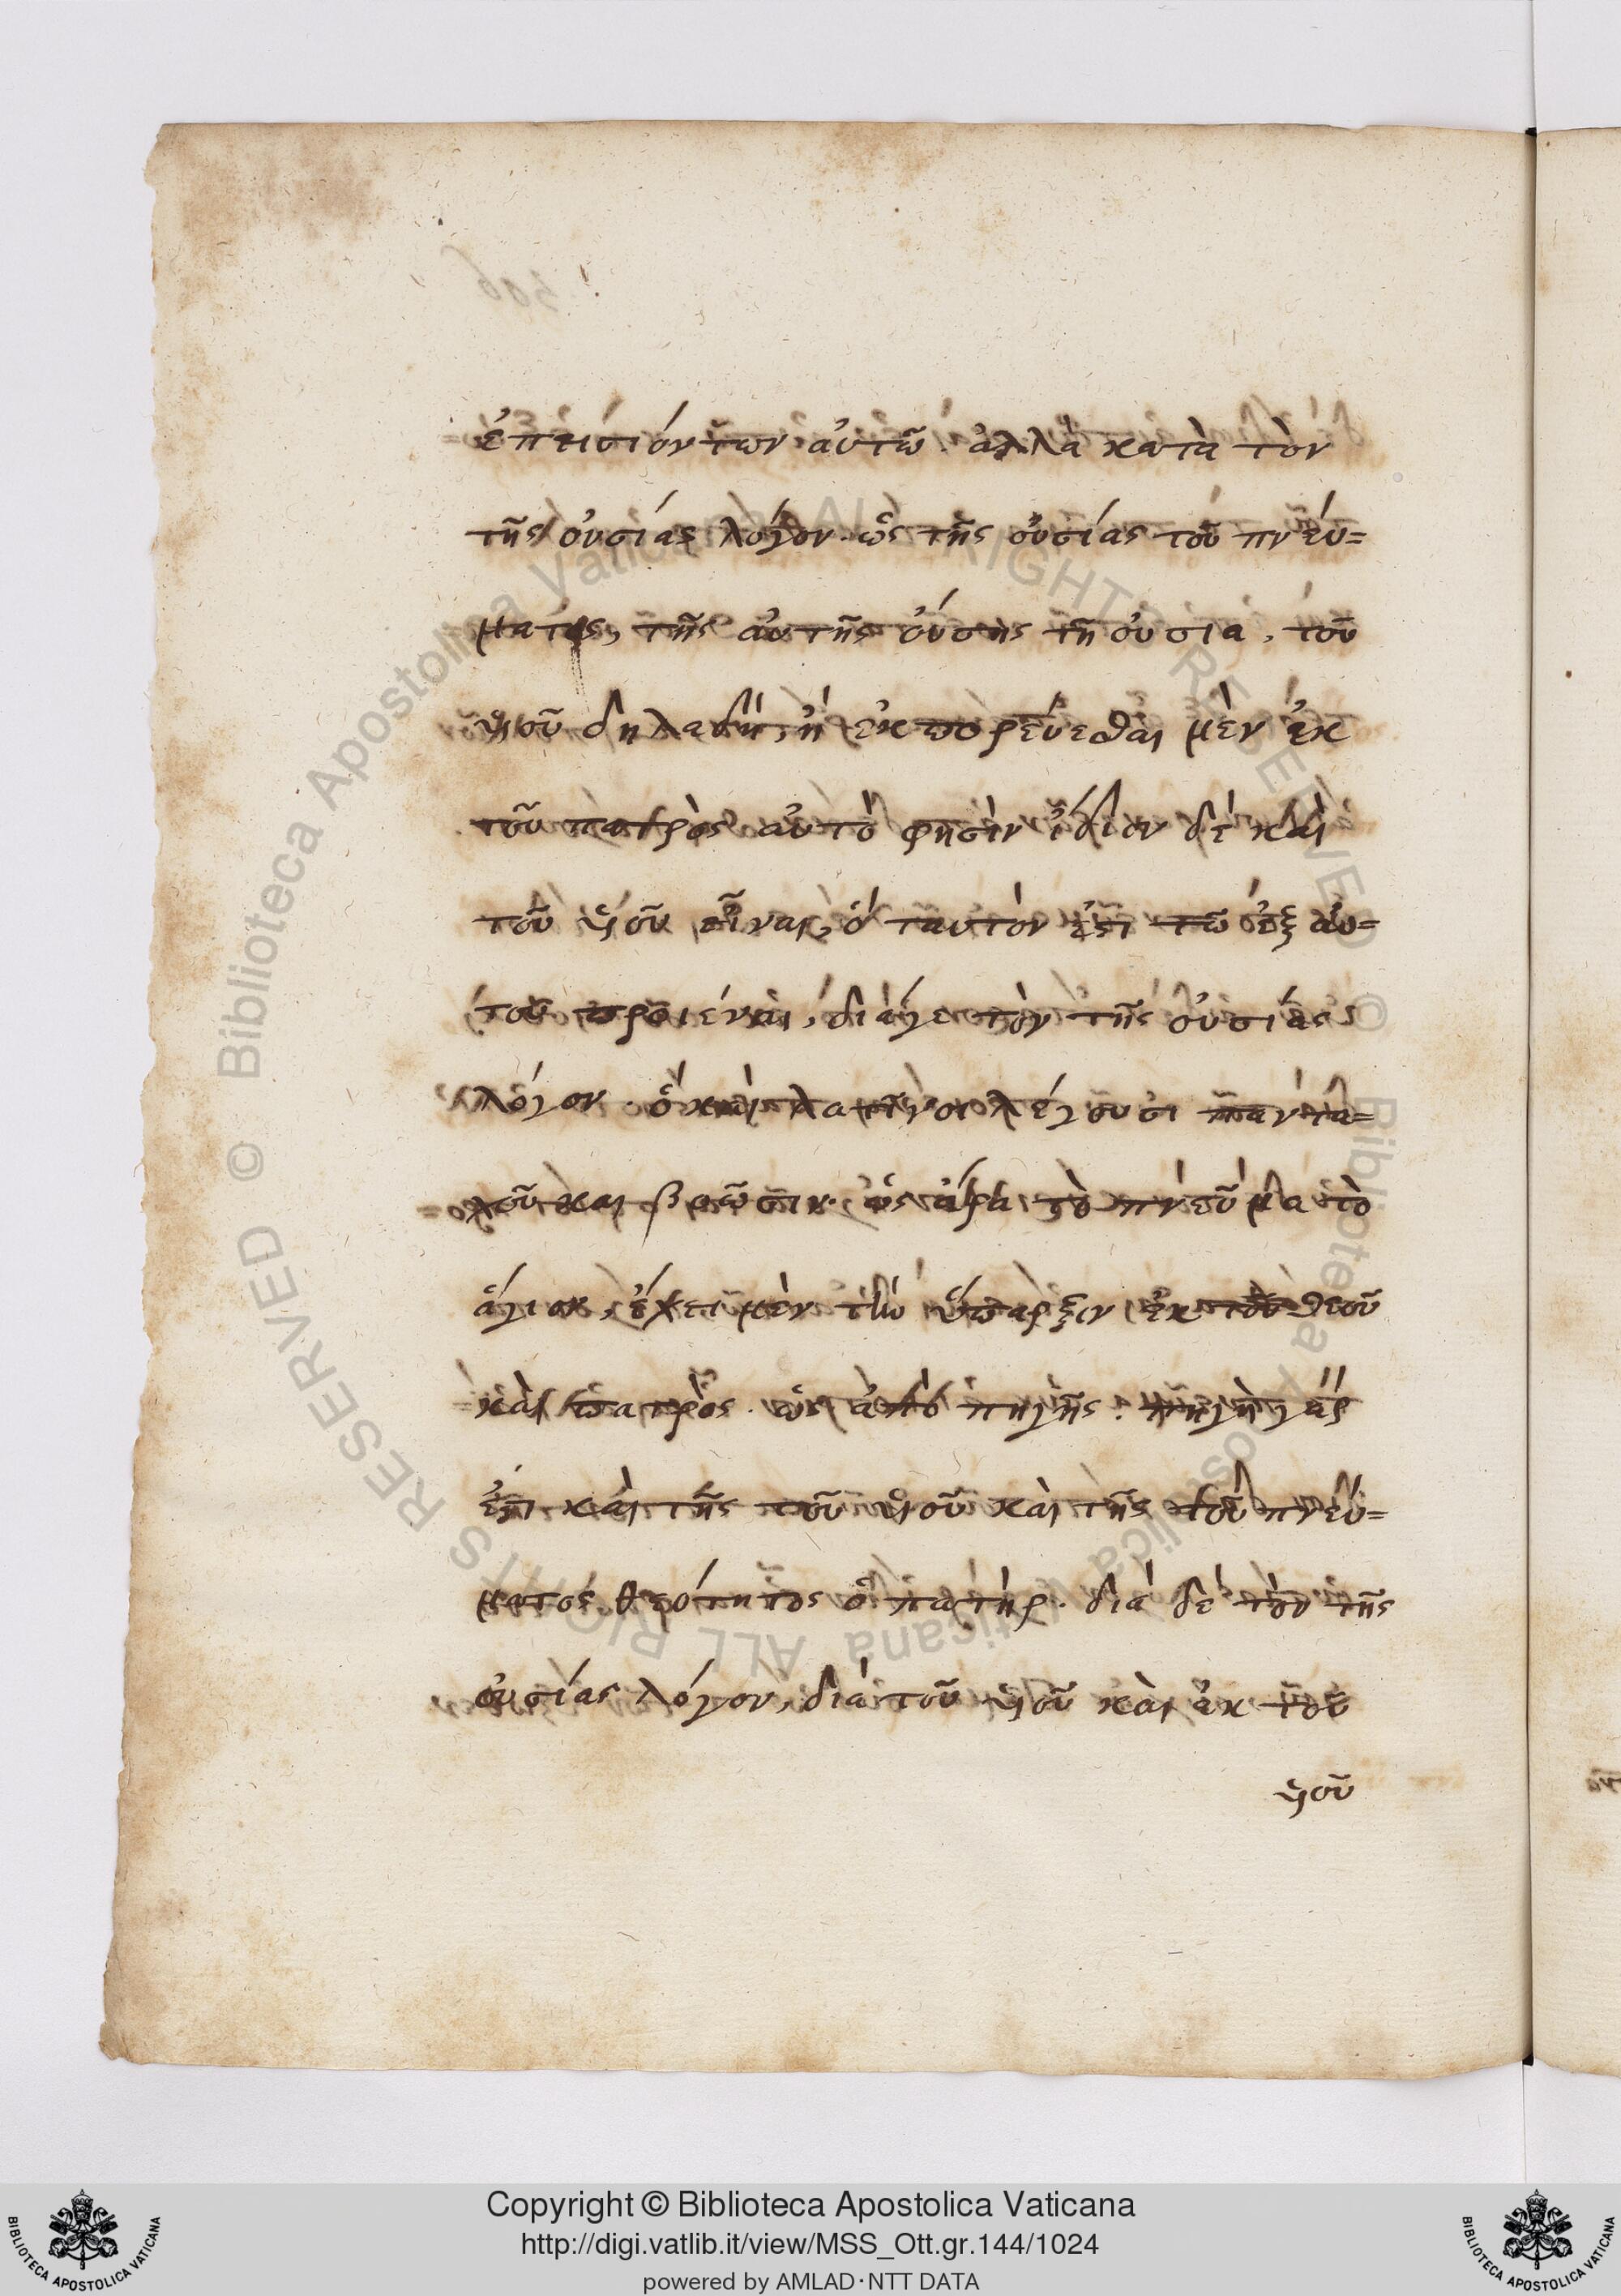 ἐπεισιόντων αὐτῶ. ἀλλὰ κατὰ τὸν
τῆς οὐσίας λόγον. ὡς τῆς οὐσίας τοῦ πνεύ=
ματος, τῆς αὐτῆς οὔσης τῆ οὐσία, τοῦ
υἱοῦ δηλαδή, ἢ ἐκπορεύεσθαι μὲν ἐκ
τοῦ πατρὸς αὐτό φησὶν ἴδιον δὲ καὶ
τοῦ υἱοῦ εἶναι, ὃ ταυτόν ἐστι τῶ ἐξ αὐ=
τοῦ προϊέναι, διάγε τὸν τῆς οὐσίας
λόγον. ὃ καὶ λατῖνοι λέγουσι παντα=
χοῦ καὶ βοῶσιν. ὡς ἄρα τὸ πνεῦμα τὸ
ἅγιον, ἔχει μὲν τὴν ὕπαρξιν ἐκ τοῦ θεοῦ
καὶ πατρὸς. ὡς ἀπὸ πηγῆς. πηγὴ γὰρ
ἐστι καὶ τῆς τοῦ υἱοῦ καὶ τῆς τοῦ πνεύ=
ματος θεότητος ὁ πατὴρ. διὰ δὲ τὸν τῆς
οὐσίας λόγον, διὰ τοῦ υἱοῦ καὶ ἐκ τοῦ
υἱοῦ
Copyright © Biblioteca Apostolica Vaticana
http://digi.vatlib.it/view/MSS_Ott.gr.144/1024
powered by AMLAD·NTT DATA
BIBLIOTECA APOSTOLICA VATICANA
BIBLIOTECA APOSTOLICA VATICANA
© Biblioteca Apostolica Vaticana ALL RIGHTS RESERVED © Biblioteca Apostolica Vaticana ALL RIGHTS RESERVED